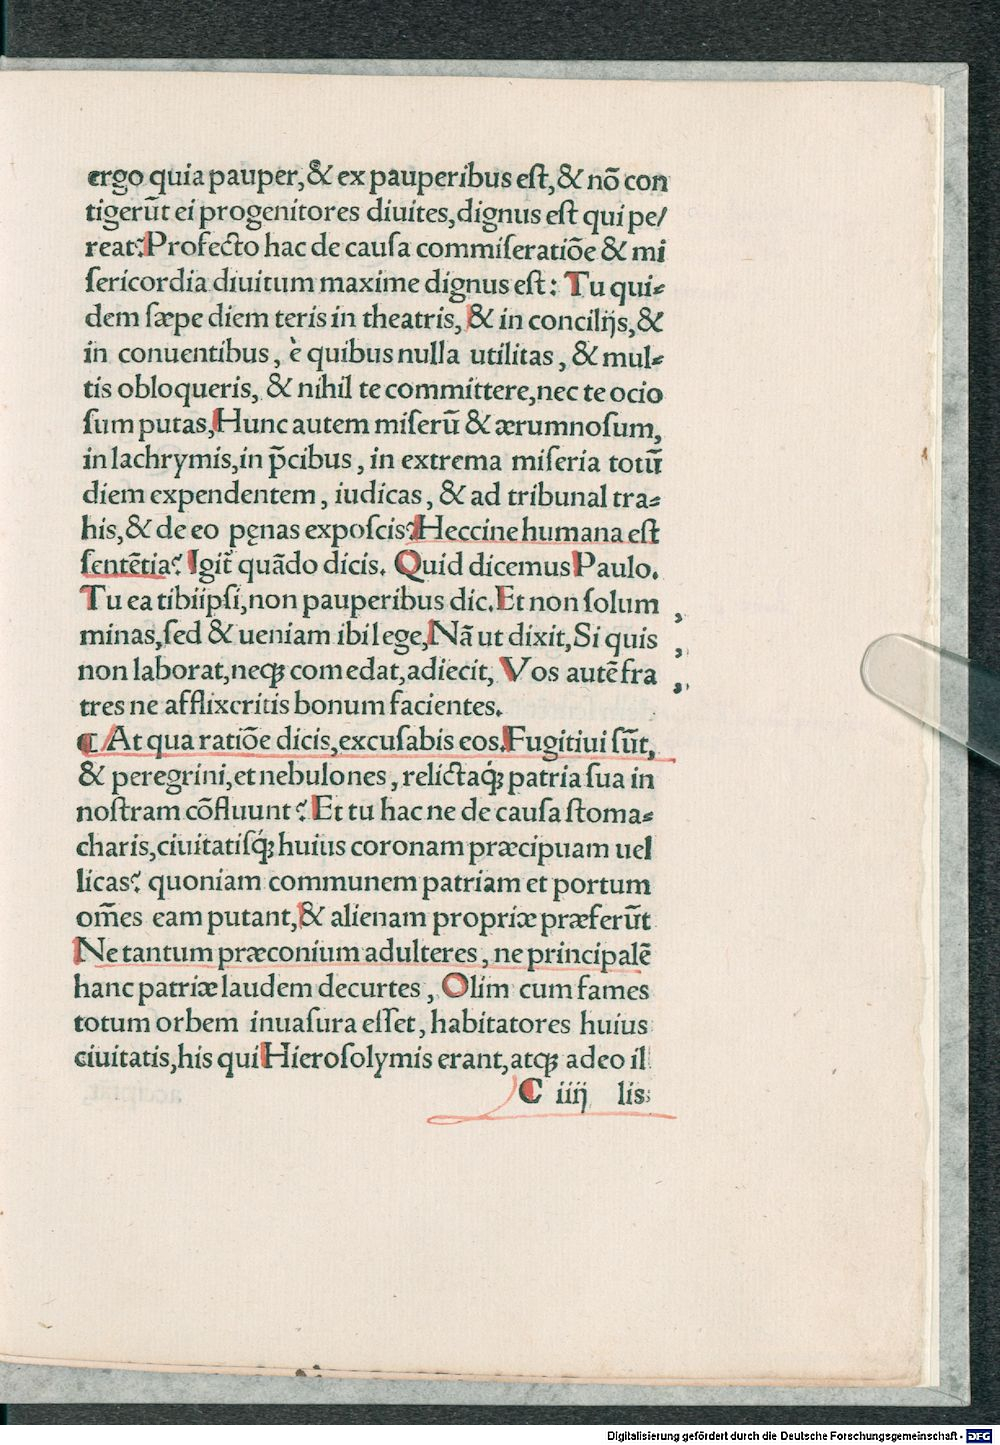 ergo quia pauper,& ex pauperibus eſt,& nō con
tigerūt ei progenitores diuites,dignus eſt qui pe/
reat?Profecto hac de cauſa commiſeratiōe & mi
ſericordia diuitum maxime dignus eſt: Tu qui⸗
dem ſæpe diem teris in theatris, & in concilijs,&
in conuentibus, è quibus nulla utilitas, & mul⸗
tis obloqueris, & nihil te committere,nec te ocio
ſum putas,Hunc autem miſerū & ærumnoſum,
in lachrymis,in p̄cibus, in extrema miſeria totū
diem expendentem, iudicas, & ad tribunal tra⸗
his,& de eo pęnas expoſcis?Heccine humana eſt
ſentētia? Igit̄ quādo dicis. Quid dicemus Paulo.
Tu ea tibiipſi,non pauperibus dic.Et non ſolum
minas,ſed & ueniam ibi lege,Nā ut dixit,Si quis
non laborat,neqꝫ comedat,adiecit, Vos autē fra
tres ne afflixcritis bonum facientes.
¶ At qua ratiōe dicis,excuſabis eos.Fugitiui ſūt,
& peregrini,et nebulones, relictaq́ꝫ patria ſua in
noſtram cōfluunt? Et tu hac ne de cauſa ſtoma⸗
charis,ciuitatiſq́ꝫ huius coronam præcipuam uel
licas? quoniam communem patriam et portum
om̄es eam putant,& alienam propriæ præferūt
Ne tantum præconium adulteres, ne principalē
hanc patriæ laudem decurtes, Olim cum fames
totum orbem inuaſura eſſet, habitatores huius
ciuitatis,his qui Hieroſolymis erant,atqꝫ adeo il
C iiij lis
Digitalisierung gefördert durch die Deutsche Forschungsgemeinschaft - DFG